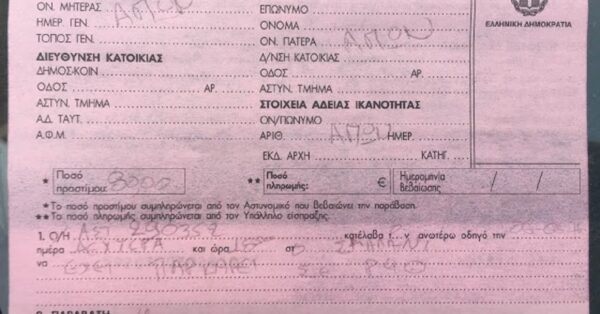 ΟΝ. ΜΗΤΕΡΑΣ ΑΠΩΝ ΕΠΩΝΥΜΟ
ΗΜΕΡ. ΓΕΝ. ΟΝΟΜΑ
ΤΟΠΟΣ ΓΕΝ. ΟΝ. ΠΑΤΕΡΑ ΑΠΩΝ
ΕΛΛΗΝΙΚΗ ΔΗΜΟΚΡΑΤΙΑ
ΔΙΕΥΘΥΝΣΗ ΚΑΤΟΙΚΙΑΣ Δ/ΝΣΗ ΚΑΤΟΙΚΙΑΣ
ΔΗΜΟΣ-ΚΟΙΝ ΟΔΟΣ ΑΡ.
ΟΔΟΣ ΑΡ. ΑΣΤΥΝ. ΤΜΗΜΑ
ΑΣΤΥΝ. ΤΜΗΜΑ ΣΤΟΙΧΕΙΑ ΑΔΕΙΑΣ ΙΚΑΝΟΤΗΤΑΣ
ΑΔ. ΤΑΥΤ. ΟΝ/ΠΩΝΥΜΟ
Α.Φ.Μ. ΑΡΙΘ. ΑΠΩΝ ΗΜΕΡ.
ΕΚΔ. ΑΡΧΗ ΚΑΤΗΓ.
* Ποσό προστίμου: ** Ποσό πληρωμής: € Ημερομηνία Βεβαίωσης / /
* Το ποσό προστίμου συμπληρώνεται από τον Αστυνομικό που βεβαιώνει την παράβαση.
** Το ποσό πληρωμής συμπληρώνεται από τον Υπάλληλο είσπραξης.
1. Ο/Η κατέλαβα τ ανωτέρω οδηγό την
ημέρα και ώρα στ
να
2. ΠΑΡΑΒΑΣΗ